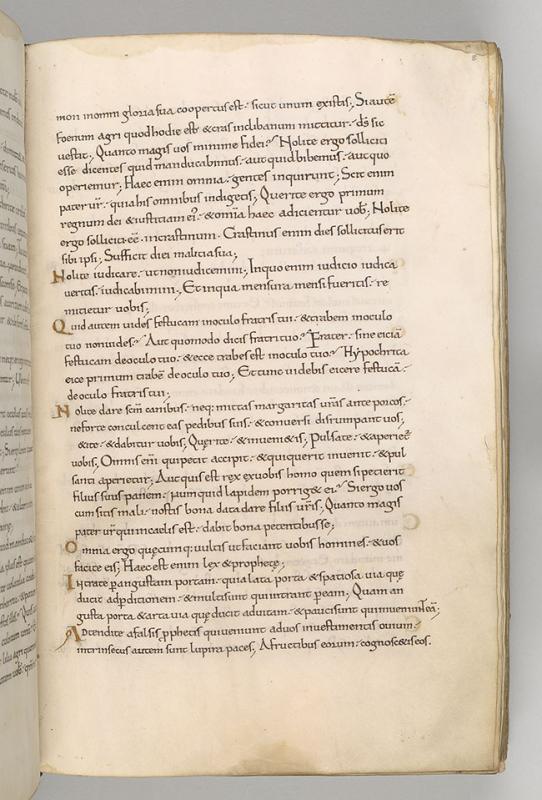 mon inomni gloria sua coopertus est · sicut unum ex istis; Si autē
foenum agri quod hodie est · & cras inclibanum mittitur · ds̄ sic
uestit; Quanto magis uos minime fidei? Nolite ergo solliciti
esse dicentes quid manducabimus · aut quid bibemus · aut quo
operiemur; Haec enim omnia · gentes inquirunt; Scit enim
pater ur̄ · quia his omnibus indigetis; Querite ergo primum
regnum dei & iustitiam ei' · & om̄ia haec adicientur uob; Nolite
ergo solliciti eē · incrastinum · Crastinus enim dies sollicitus erit
sibi ipsi; Sufficit diei malicia sua;
Nolite iudicare · ut non iudicemini; Inquo enim iudicio iudica
ueritis · iudicabimini; Et inqua mensura mensi fueritis · re
mitietur uobis;
Quid autem uides festucam inoculo fratris tui · & trabem inoculo
tuo non uides? Aut quomodo dicis fratri tuo? Frater · sine eiciā
festucam de oculo tuo · & ecce trabes est inoculo tuo? Hypochrita
eice primum trabē de oculo tuo; Et tunc uidebis eicere festucā ·
de oculo fratris tui;
Nolite dare sc̄m canibus · neq; mittas margaritas ur̄as ante porcos ·
ne forte conculcent eas pedibus suis · & conuersi disrumpant uos;
& ite · & dabitur uobis; Quęrite · & inueni&is; Pulsate · & aperiet̄
uobis; Omnis enī qui petit accipit · & qui querit inuenit · & pul
santi aperietur; Aut quis est rex exuobis homo quem si petierit
filius suus panem · numquid lapidem porrig& ei? Si ergo uos
cum sitis mali · nostis bona data dare filiis ur̄is; Quanto magis
pater ur̄ qui incaelis est · dabit bona petentibus se;
Omnia ergo quęcumq; uultis ut faciant uobis homines · & uos
facite eis; Haec est enim lex & prophetę;
Intrate p angustam portam · quia lata porta · & spatiosa uia quę
ducit ad pditionem · & multi sunt qui intrant p eam; Quam an
gusta porta & arta uia quę ducit ad uitam · & pauci sunt qui inueniunt eā;
Adtendite afalsis pphetis qui ueniunt aduos inuestimentis ouium ·
intrinsecus autem sunt lupi rapaces; A fructibus eorum · cognosc&is eos ·